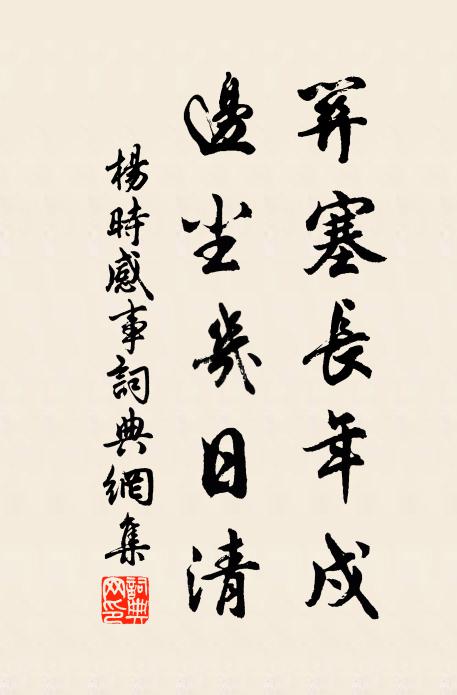 關塞長年戍
邊塵幾日清
楊時感事詞典網集
詞典网印